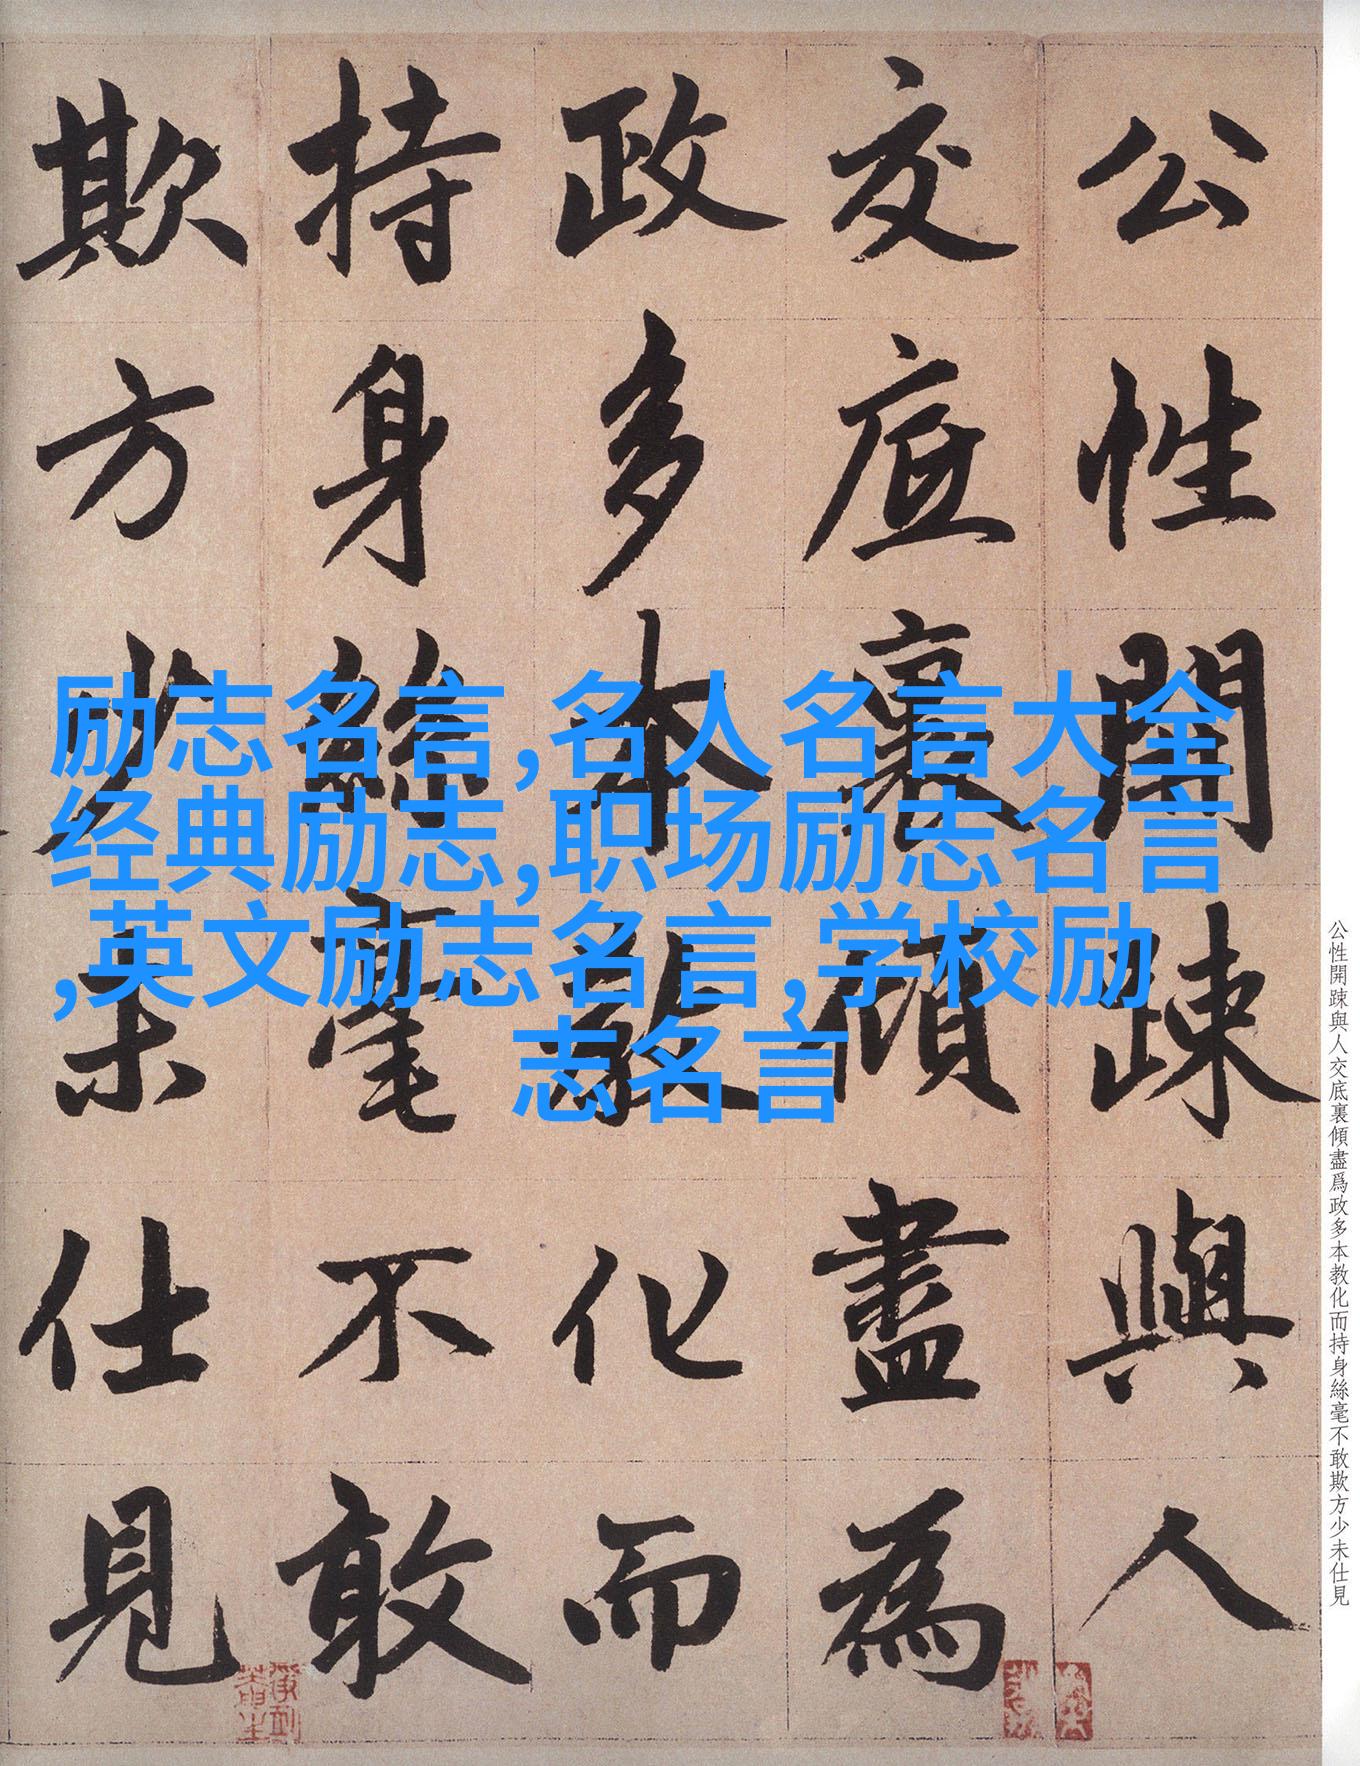 公性開踈與人
交底裏傾盡為
政多本教化而
持身絲毫不敢
欺方少未仕見
励志名言,名人名言大全
经典励志,职场励志名言
,英文励志名言,学校励
志名言
公性開踈與人交底裏傾盡爲政多本教化而持身絲毫不敢欺方少未仕見